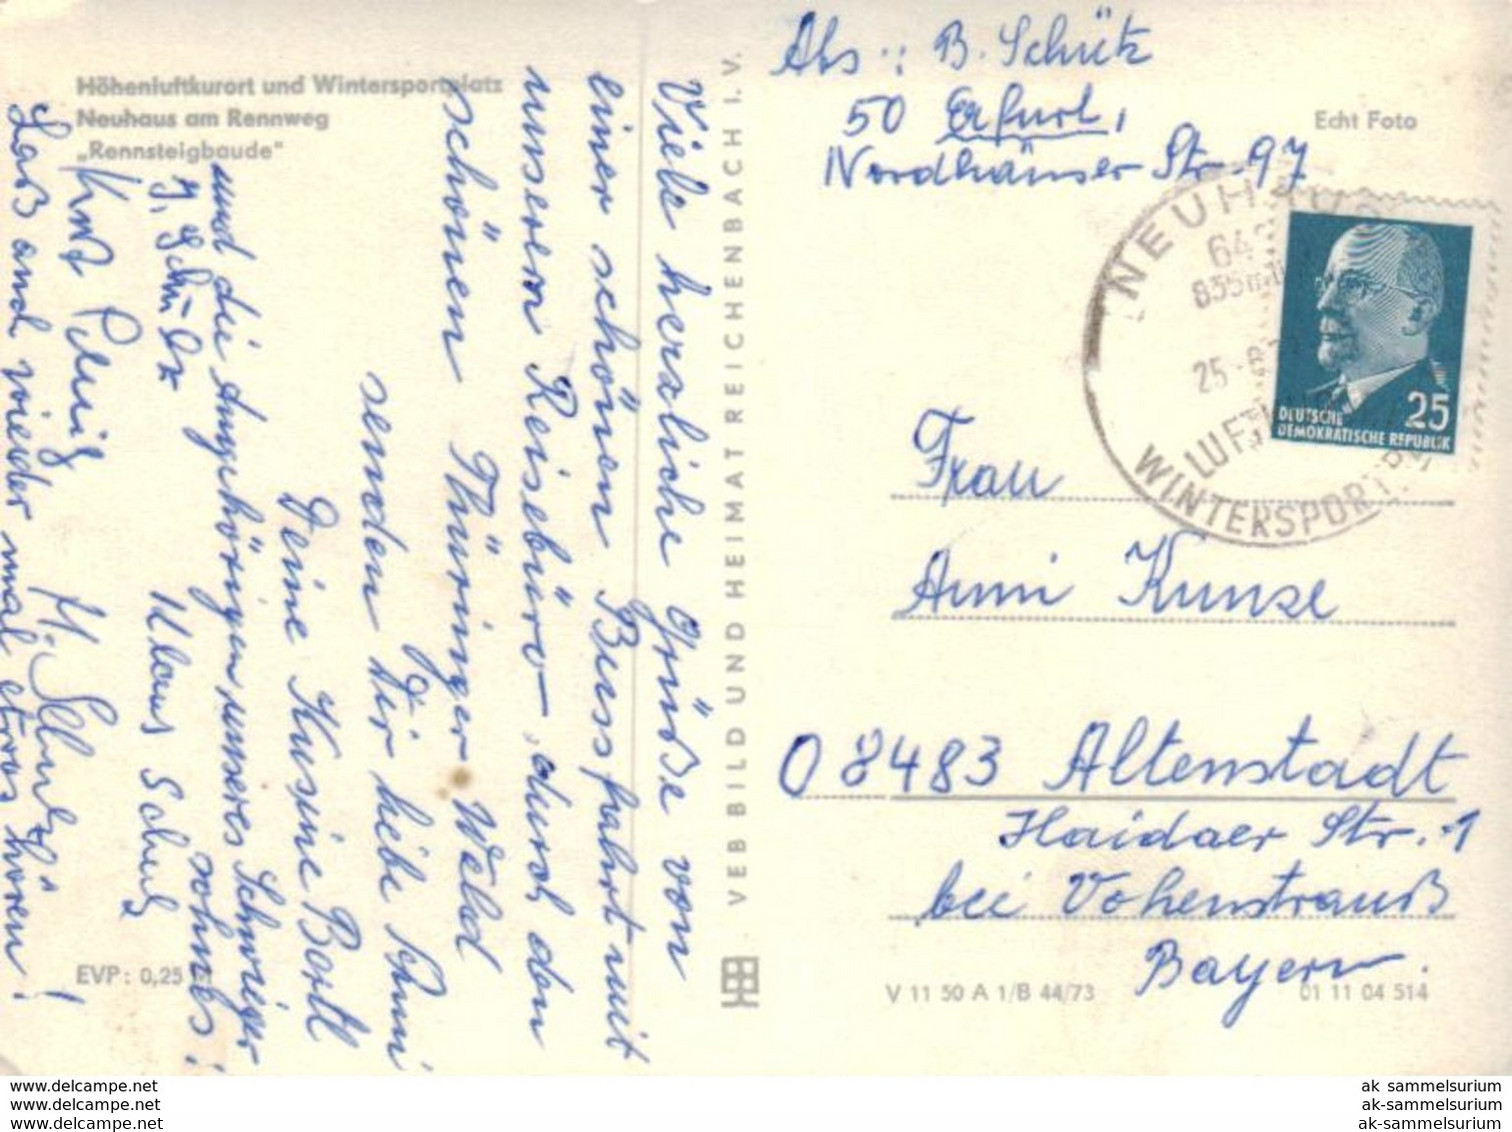 Höhenluftkurort und Wintersportplatz
Neuhaus am Rennweg
„Rennsteigbaude"
Viele herzliche Grüße von
einer schönen Bussfahrt mit
unserem Reisebüro, durch den
schönen Thüringer Wald
senden Dir liebe Anni
Deine Kusine Bertl
und die Angehörigen unseres Schwieger
sohnes!
Klaus Schuh
Laß and wieder mal etwas hören!
EVP: 0,25 M
VEB BILD UND HEIMAT REICHENBACH I. V.
Abs.: B. Schütz
50 Erfurt,
Nordhäuser Str. 97
Echt Foto
NEUHAUS
64
835m
25.-8.
LUFT
WINTERSPORT
DEUTSCHE
DEMOKRATISCHE REPUBLIK
25
Frau
Anni Kunze
O 8483 Altenstadt
Haidaer Str. 1
bei Vohenstrauß
Bayern.
V 11 50 A 1/B 44/73
01 11 04 514
www.delcampe.net
www.delcampe.net
www.delcampe.net
ak_sammelsurium
ak-sammelsurium
ak-sammelsurium